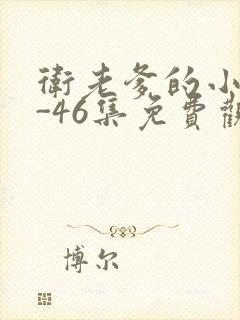 衛老爹的小
-46集免費觀
博尔